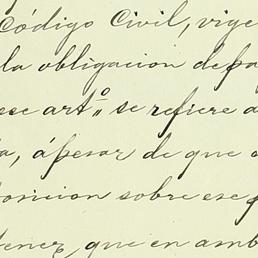 Código Civil, vige
la obligacion de pa
ese artº se refiere a
a, ápesar de que
posicion sobre ese p
tener, que en amb